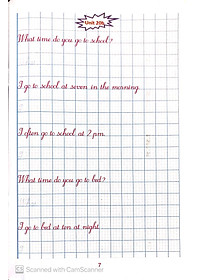 Unit 20b
What time do you go to school?
I go to school at seven in the morning.
I often go to school at 2 pm.
What time do you go to bed?
I go to bed at ten at night.
7
CS Scanned with CamScanner